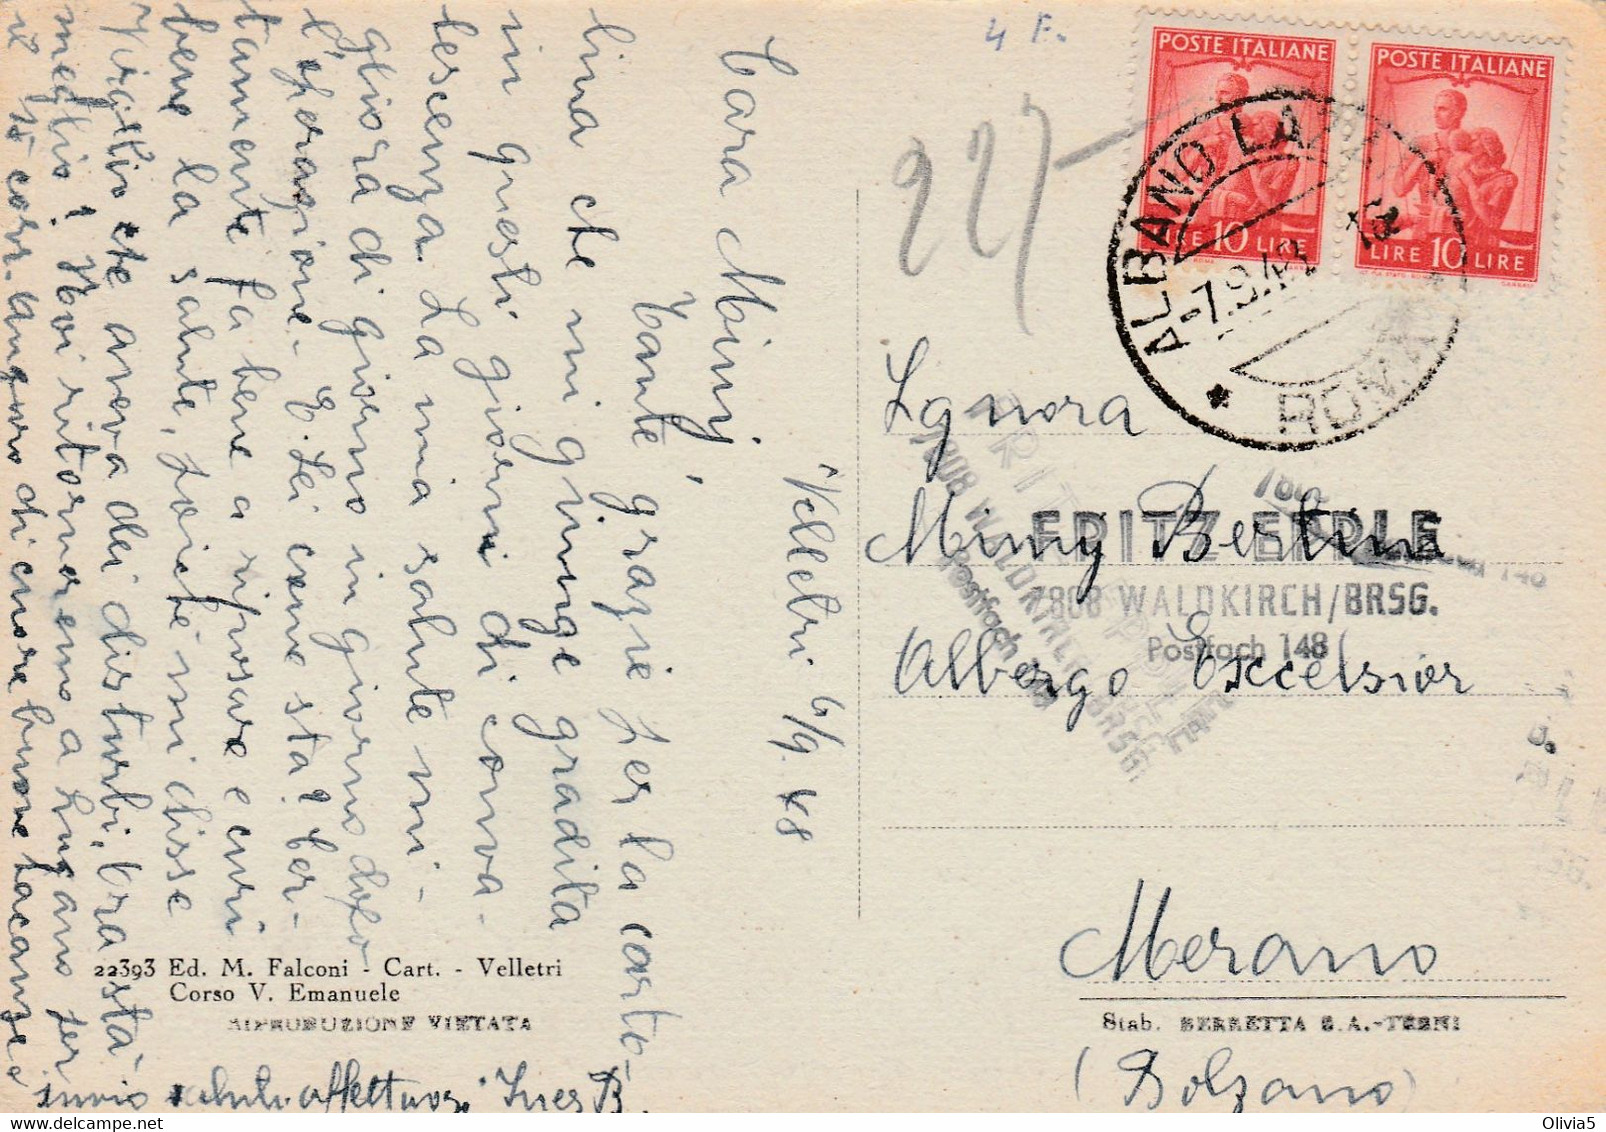 4 F.
POSTE ITALIANE
LIRE 10 LIRE
POSTE ITALIANE
LIRE 10 LIRE
ALBANO LAZIALE
-7.9.48
ROMA
227-
Velletri 6/9.48
Cara Mimy,
Tante grazie per la carto-
lina che mi giunge gradita
in questi giorni di conva-
lescenza. La mia salute mi-
gliora di giorno in giorno dopo
l'operazione. E Lei come sta? Cer-
tamente fa bene a riposare e curi
bene la salute, poiché mi disse
Virgilio che aveva dei disturbi, ora sta
meglio? Noi ritorneremo a Lugano per
il 15 corr. auguro di cuore buone vacanze e
invio saluti affettuosi Ines B.
22393 Ed. M. Falconi - Cart. - Velletri
Corso V. Emanuele
RIPRODUZIONE VIETATA
Sgnora
Mimy Bertina
Albergo Excelsior
Merano
(Bolzano)
FRITZ EPPLE
7808 WALDKIRCH/BRSG.
Postfach 148
Stab. BERRETTA S.A.-TERNI
Olivia5